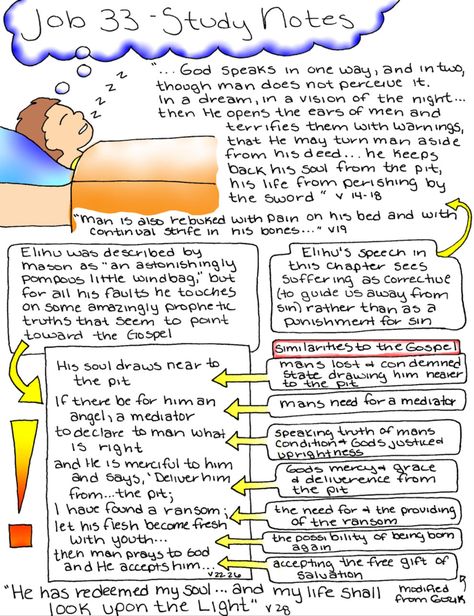 Job 33 - Study Notes
z z z
"... God speaks in one way, and in two,
though man does not perceive it.
In a dream, in a vision of the night...
then He opens the ears of men and
terrifies them with warnings,
that He may turn man aside
from his deed... he keeps
back his soul from the pit,
his life from perishing by
the sword" v 14-18
"man is also rebuked with pain on his bed and with
continual strife in his bones..." v19
Elihu was described by
mason as "an astonishingly
pompous little windbag," but
for all his faults he touches
on some amazingly prophetic
truths that seem to point
toward the Gospel
Elihu's speech in
this chapter sees
suffering as corrective
(to guide us away from
sin) rather than as a
punishment for sin
similarities to the Gospel
His soul draws near to
the pit
If there be for him an
angel, a mediator
to declare to man what
is right
and He is merciful to him
and says, 'Deliver him
from...the pit;
I have found a ransom;
let his flesh become fresh
with youth...
then man prays to God
and He accepts him...
v 22-26
mans lost & condemned
state drawing him nearer
to the pit
mans need for a mediator
speaking truth of mans
condition & Gods justice &
uprightness
Gods mercy & grace
& deliverence from the
pit
the need for & the providing
of the ransom
the possibility of being born
again
accepting the free gift of
salvation
"He has redeemed my soul... and my life shall
look upon the Light" v 28
modified
from Guzik